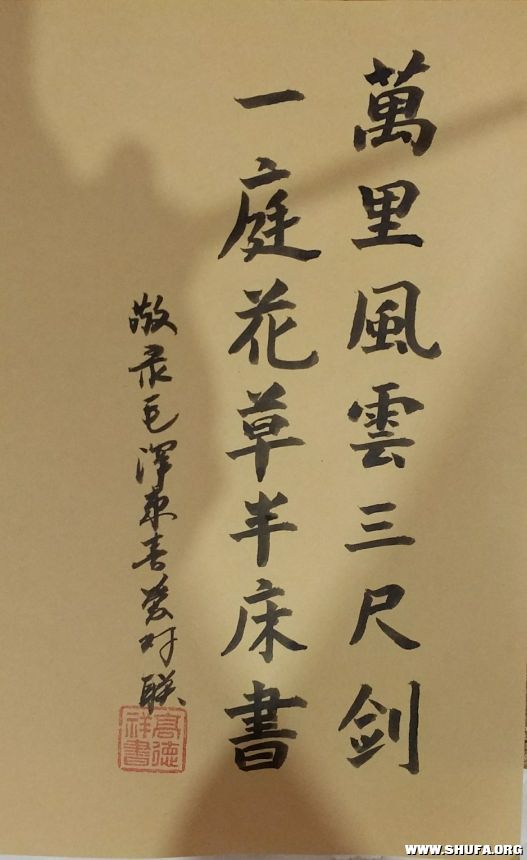 萬里風雲三尺剑
一庭花草半床書
敬录毛澤東喜爱对联
高德祥書
WWW.SHUFA.ORG